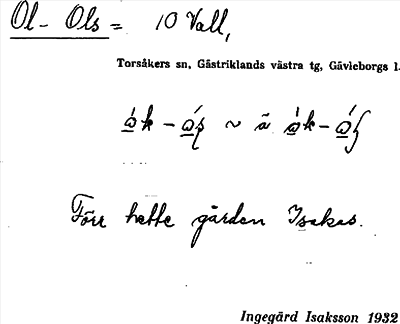 Ol- Ols = 10 Vall,
Torsåkers sn, Gästriklands västra tg, Gävleborgs l.
Förr hette gården Isakas.
Ingegärd Isaksson 1932